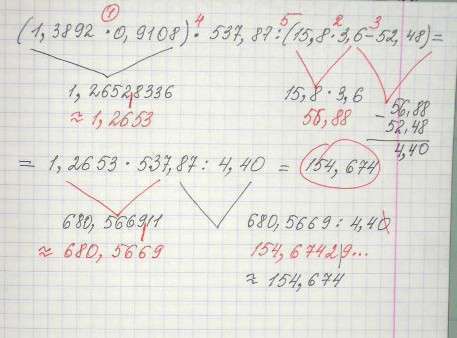 ① 4 5 2 3
(1,3892 · 0,9108) · 537,87 : (15,8 · 3,6 - 52,48) =
1,26528336
≈ 1,2653
15,8 · 3,6
56,88
- 56,88
52,48
4,40
= 1,2653 · 537,87 : 4,40 = 154,674
680,566911
≈ 680,5669
680,5669 : 4,40
154,67429...
≈ 154,674